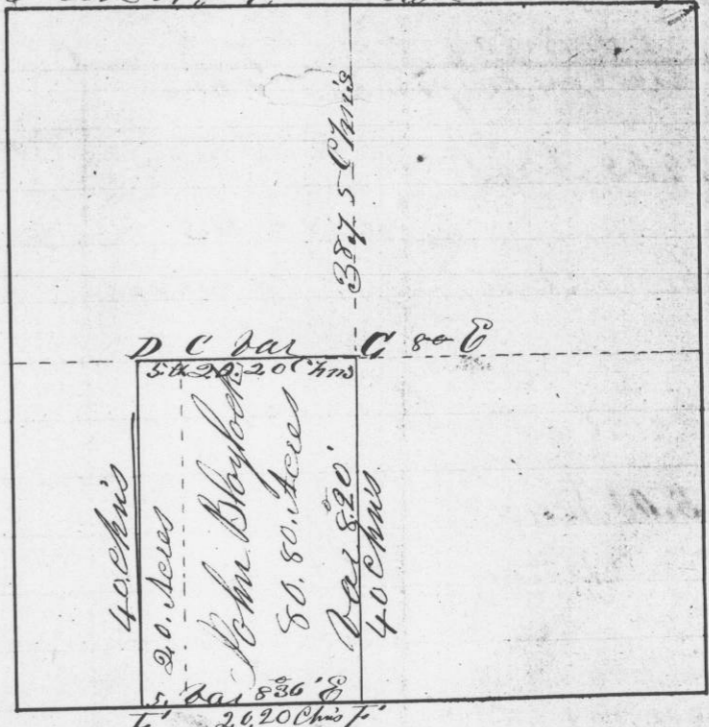 38.75 Chns
D C Var C 8° E
5 ch 20.20 Chns
40 Chns
20. Acres
John Blaylock
80.80. Acres
Var 8°20'
40 Chns
5. Var 8°36' E
2620 Chns